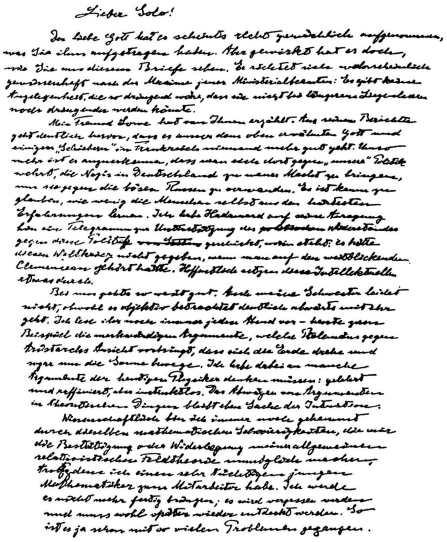 Lieber Solo!
Der liebe Gott hat es scheints recht gemächlich aufgenommen,
was Sie ihm aufgetragen haben. Aber gewirkt hat es doch,
wie Sie aus diesem Briefe sehen. Er richtet sich wahrscheinlich
gewissenhaft nach der Maxime jenes Ministerialbeamten: Es gibt keine
Angelegenheit, die so dringend wäre, dass sie nicht bei längerem Liegenlassen
noch dringender werden könnte.
Mein Freund hat von Ihnen erzählt. Aus seinem Berichte
geht deutlich hervor, dass es ausser dem oben erwähnten Gott und
einigen „Schiebern" in Frankreich niemand mehr gut geht. Umso
mehr ist es anzuerkennen, dass man sich dort gegen „unsere" Politik
wehrt, die Nazis in Deutschland zu neuer Macht zu bringen,
um sie gegen die bösen Russen zu verwenden. Es ist kaum zu
glauben, wie wenig die Menschen selbst aus den härtesten
Erfahrungen lernen. Ich habe Hadamard auf seine Anregung
hin ein Telegramm zur Unterstützung des Widerstandes
gegen diese Politik geschickt, worin steht: Es hätte
diesen Weltkrieg nicht gegeben, wenn man auf den weitblickenden
Clemenceau gehört hätte. Hoffentlich setzen diese Intellektuellen
etwas durch.
Bei uns gehts so weit gut. Auch meine Schwester leidet
nicht, obwohl es objektiv betrachtet deutlich abwärts mit ihr
geht. Ich lese ihr noch immer jeden Abend vor – heute zum
Beispiel die merkwürdigen Argumente, welche Ptolemäus gegen
Aristarchs Ansicht vorbringt, dass sich die Erde drehe und
sogar um die Sonne bewege. Ich habe dabei an manche
Argumente der heutigen Physiker denken müssen: gelehrt
und raffiniert, aber instinktlos. Das Abwägen von Argumenten
in theoretischen Dingen bleibt eben Sache der Intuition.
Wissenschaftlich bin ich immer noch gehemmt
durch dieselben mathematischen Schwierigkeiten, die mir
die Bestätigung oder Widerlegung meiner allgemeinen
relativistischen Feldtheorie unmöglich machen,
trotzdem ich einen sehr tüchtigen jungen
Mathematiker zum Mitarbeiter habe. Ich werde
es nicht mehr fertig bringen; es wird vergessen werden
und muss wohl später wieder entdeckt werden. So
ist es ja schon mit so vielen Problemen gegangen.